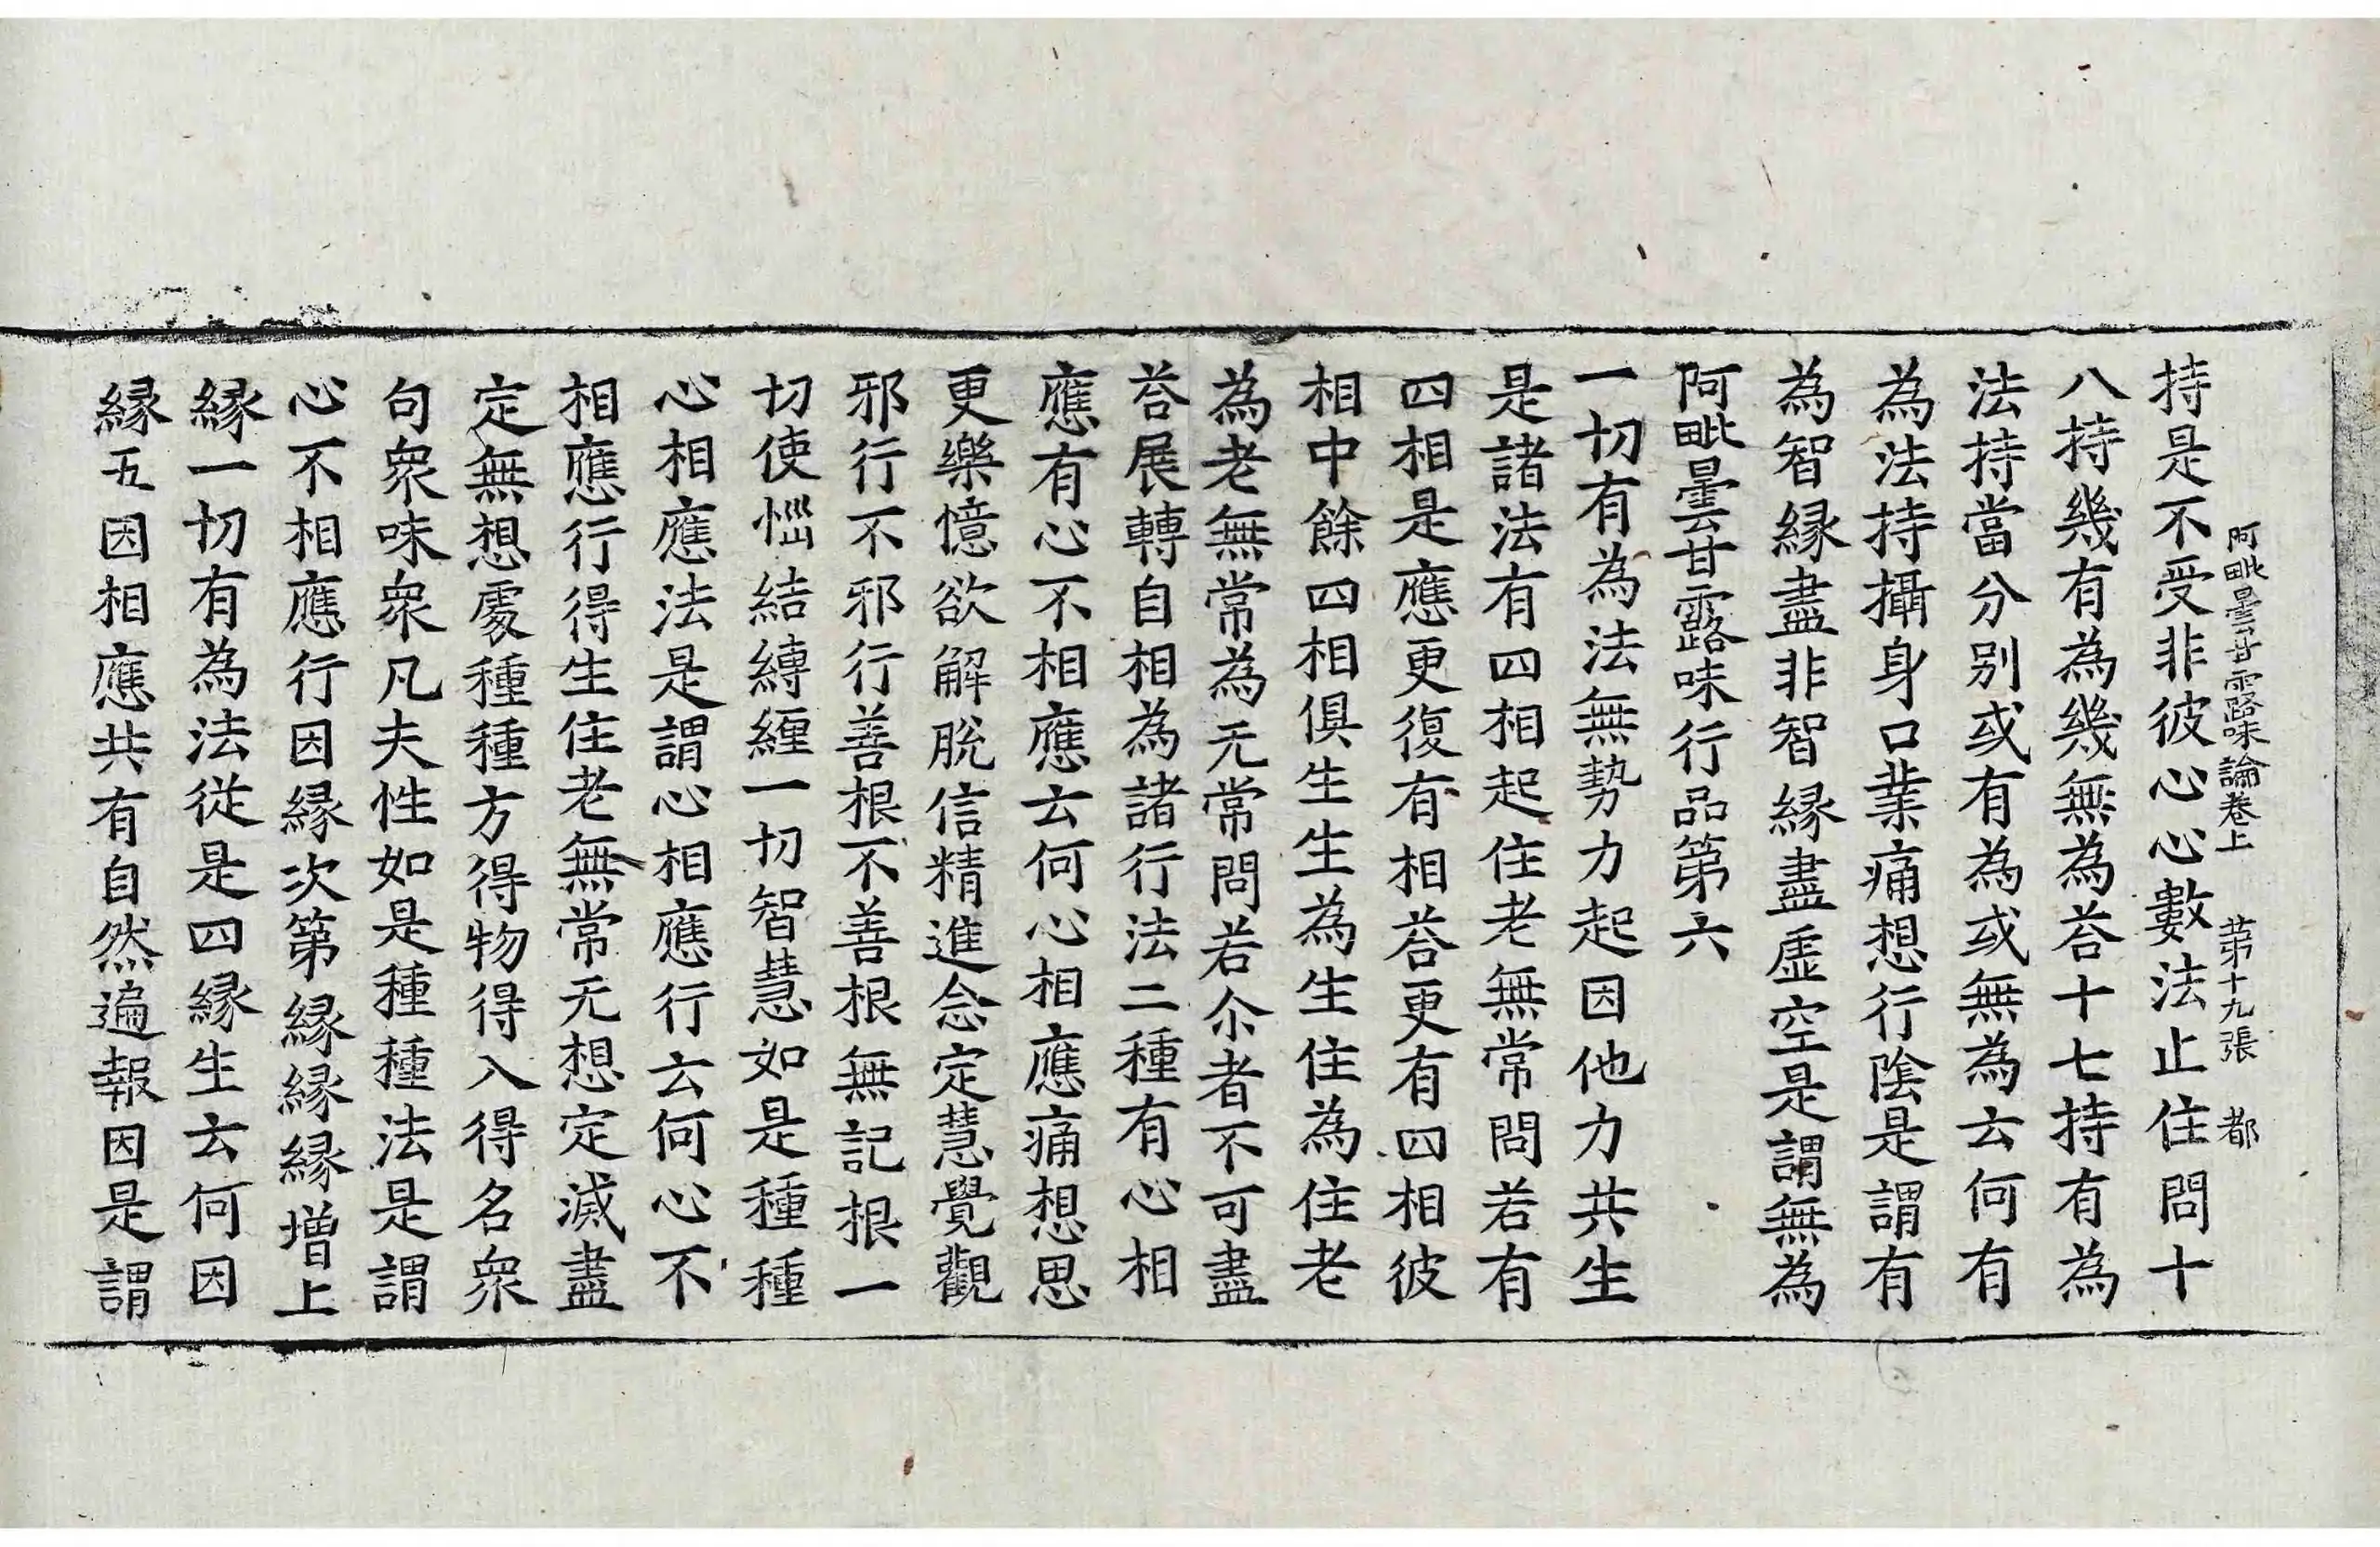 阿毗曇甘露味論卷上　第十九張　都
持是不受非彼心心數法止住問十
八持幾有為幾無為荅十七持有為
法持當分别或有為或無為云何有
為法持攝身口業痛想行陰是謂有
為智緣盡非智緣盡虛空是謂無為
阿毗曇甘露味行品第六
一切有為法無勢力起因他力共生
是諸法有四相起住老無常問若有
四相是應更復有相荅更有四相彼
相中餘四相俱生生為生住為住老
為老無常為无常問若尒者不可盡
荅展轉自相為諸行法二種有心相
應有心不相應云何心相應痛想思
更樂憶欲解脫信精進念定慧覺觀
邪行不邪行善根不善根無記根一
切使惱結縛纏一切智慧如是種種
心相應法是謂心相應行云何心不
相應行得生住老無常无想定滅盡
定無想處種種方得物得入得名衆
句衆味衆凡夫性如是種種法是謂
心不相應行因緣次第緣緣緣增上
緣一切有為法從是四緣生云何因
緣五因相應共有自然遍報因是謂